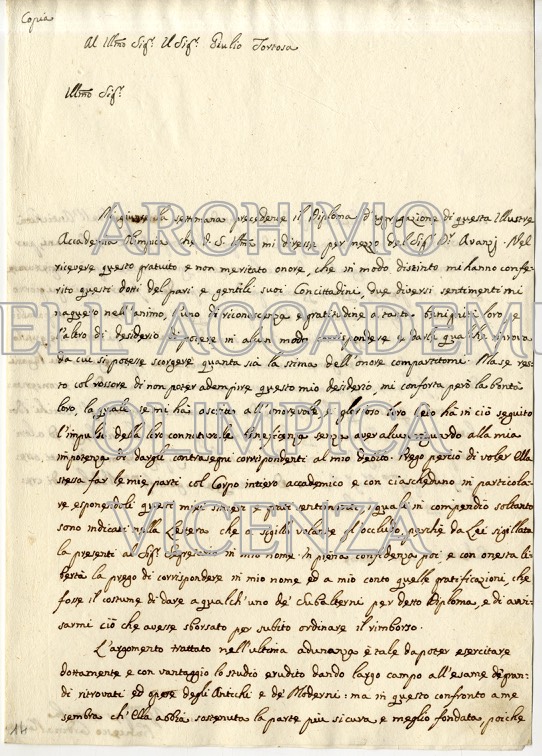 Copia
Al Illmo Sigr. Il Sigr. Giulio Tortosa
Illmo Sigr.
Mi giunse la settimana precedente il Diploma d'agregazione di questa Illustre
Accademia Olimpica che V. S. Illma mi diresse per mezzo del Sigr. Dr. Avanzi. Nel
ricevere questo gratuito e non meritato onore, che in modo distinto mi hanno confe-
rito questi dotti del pari e gentili suoi Concittadini, due diversi sentimenti mi
naquero nell'animo, l'uno di riconoscenza e gratitudine a tanta benignità loro, e
l'altro di desiderio di potere in alcun modo corrispondere e darle qualche riprova
da cui si potesse scorgere quanta sia la stima dell'onore compartitomi. Ma se res-
to col rossore di non poter adempire questo mio desiderio, mi conforta però la bontà
loro, la quale se mi ha ascritto all'onorevole e glorioso loro Ceto ha in ciò seguito
l'impulso della loro connaturale beneficenza senza aver alcun riguardo alla mia
impotenza di dargli contrasegni corrispondenti al mio debito. Prego perciò di voler Ella
stessa far le mie parti col Corpo intiero accademico e con ciascheduno in particola-
re esponendoli questi miei sinceri e puri sentimenti, quali in compendio soltanto
sono indicati nella Lettera che a sigillo volante gl'occludo, perchè da Lei sigillata
la presenti al Sigr. Segretario in mio nome. In piena confidenza poi, e con onesta li-
bertà la prego di corrispondere in mio nome ed a mio conto quelle gratificazioni, che
fosse il costume di dare a qualch'uno de' Subalterni per detto Diploma, e di avvi-
sarmi ciò che avesse sborsato per subito ordinare il rimborso.
L'argomento trattato nell'ultima adunanza è tale da poter esercitare
dottamente e con vantaggio lo studio erudito dando largo campo all'esame de' gran-
di ritrovati ed opere degli Antichi e de' Moderni: ma in questo confronto a me
sembra ch'Ella abbia sostenuta la parte più sicura e meglio fondata, poichè
14
ARCHIVIO
DELL'ACCADEMIA
OLIMPICA
VICENZA